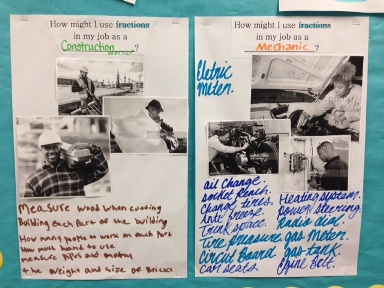 How might I use fractions
in my job as a
Construction worker?
Measure wood when cutting
Building each part of the building
How many people to work on each part
how much wood to use
measure pipes and
the weight and size of Bricks
How might I use fractions
in my job as a
Mechanic?
Eletric
Meter.
oil Change.
socket
Change tires.
Anti freeze.
Trunk space.
Tire pressure
Circut Board
car seats.
Heating system.
power steering.
Radio dial.
gas Meter.
gas tank.
Engine Bolt.